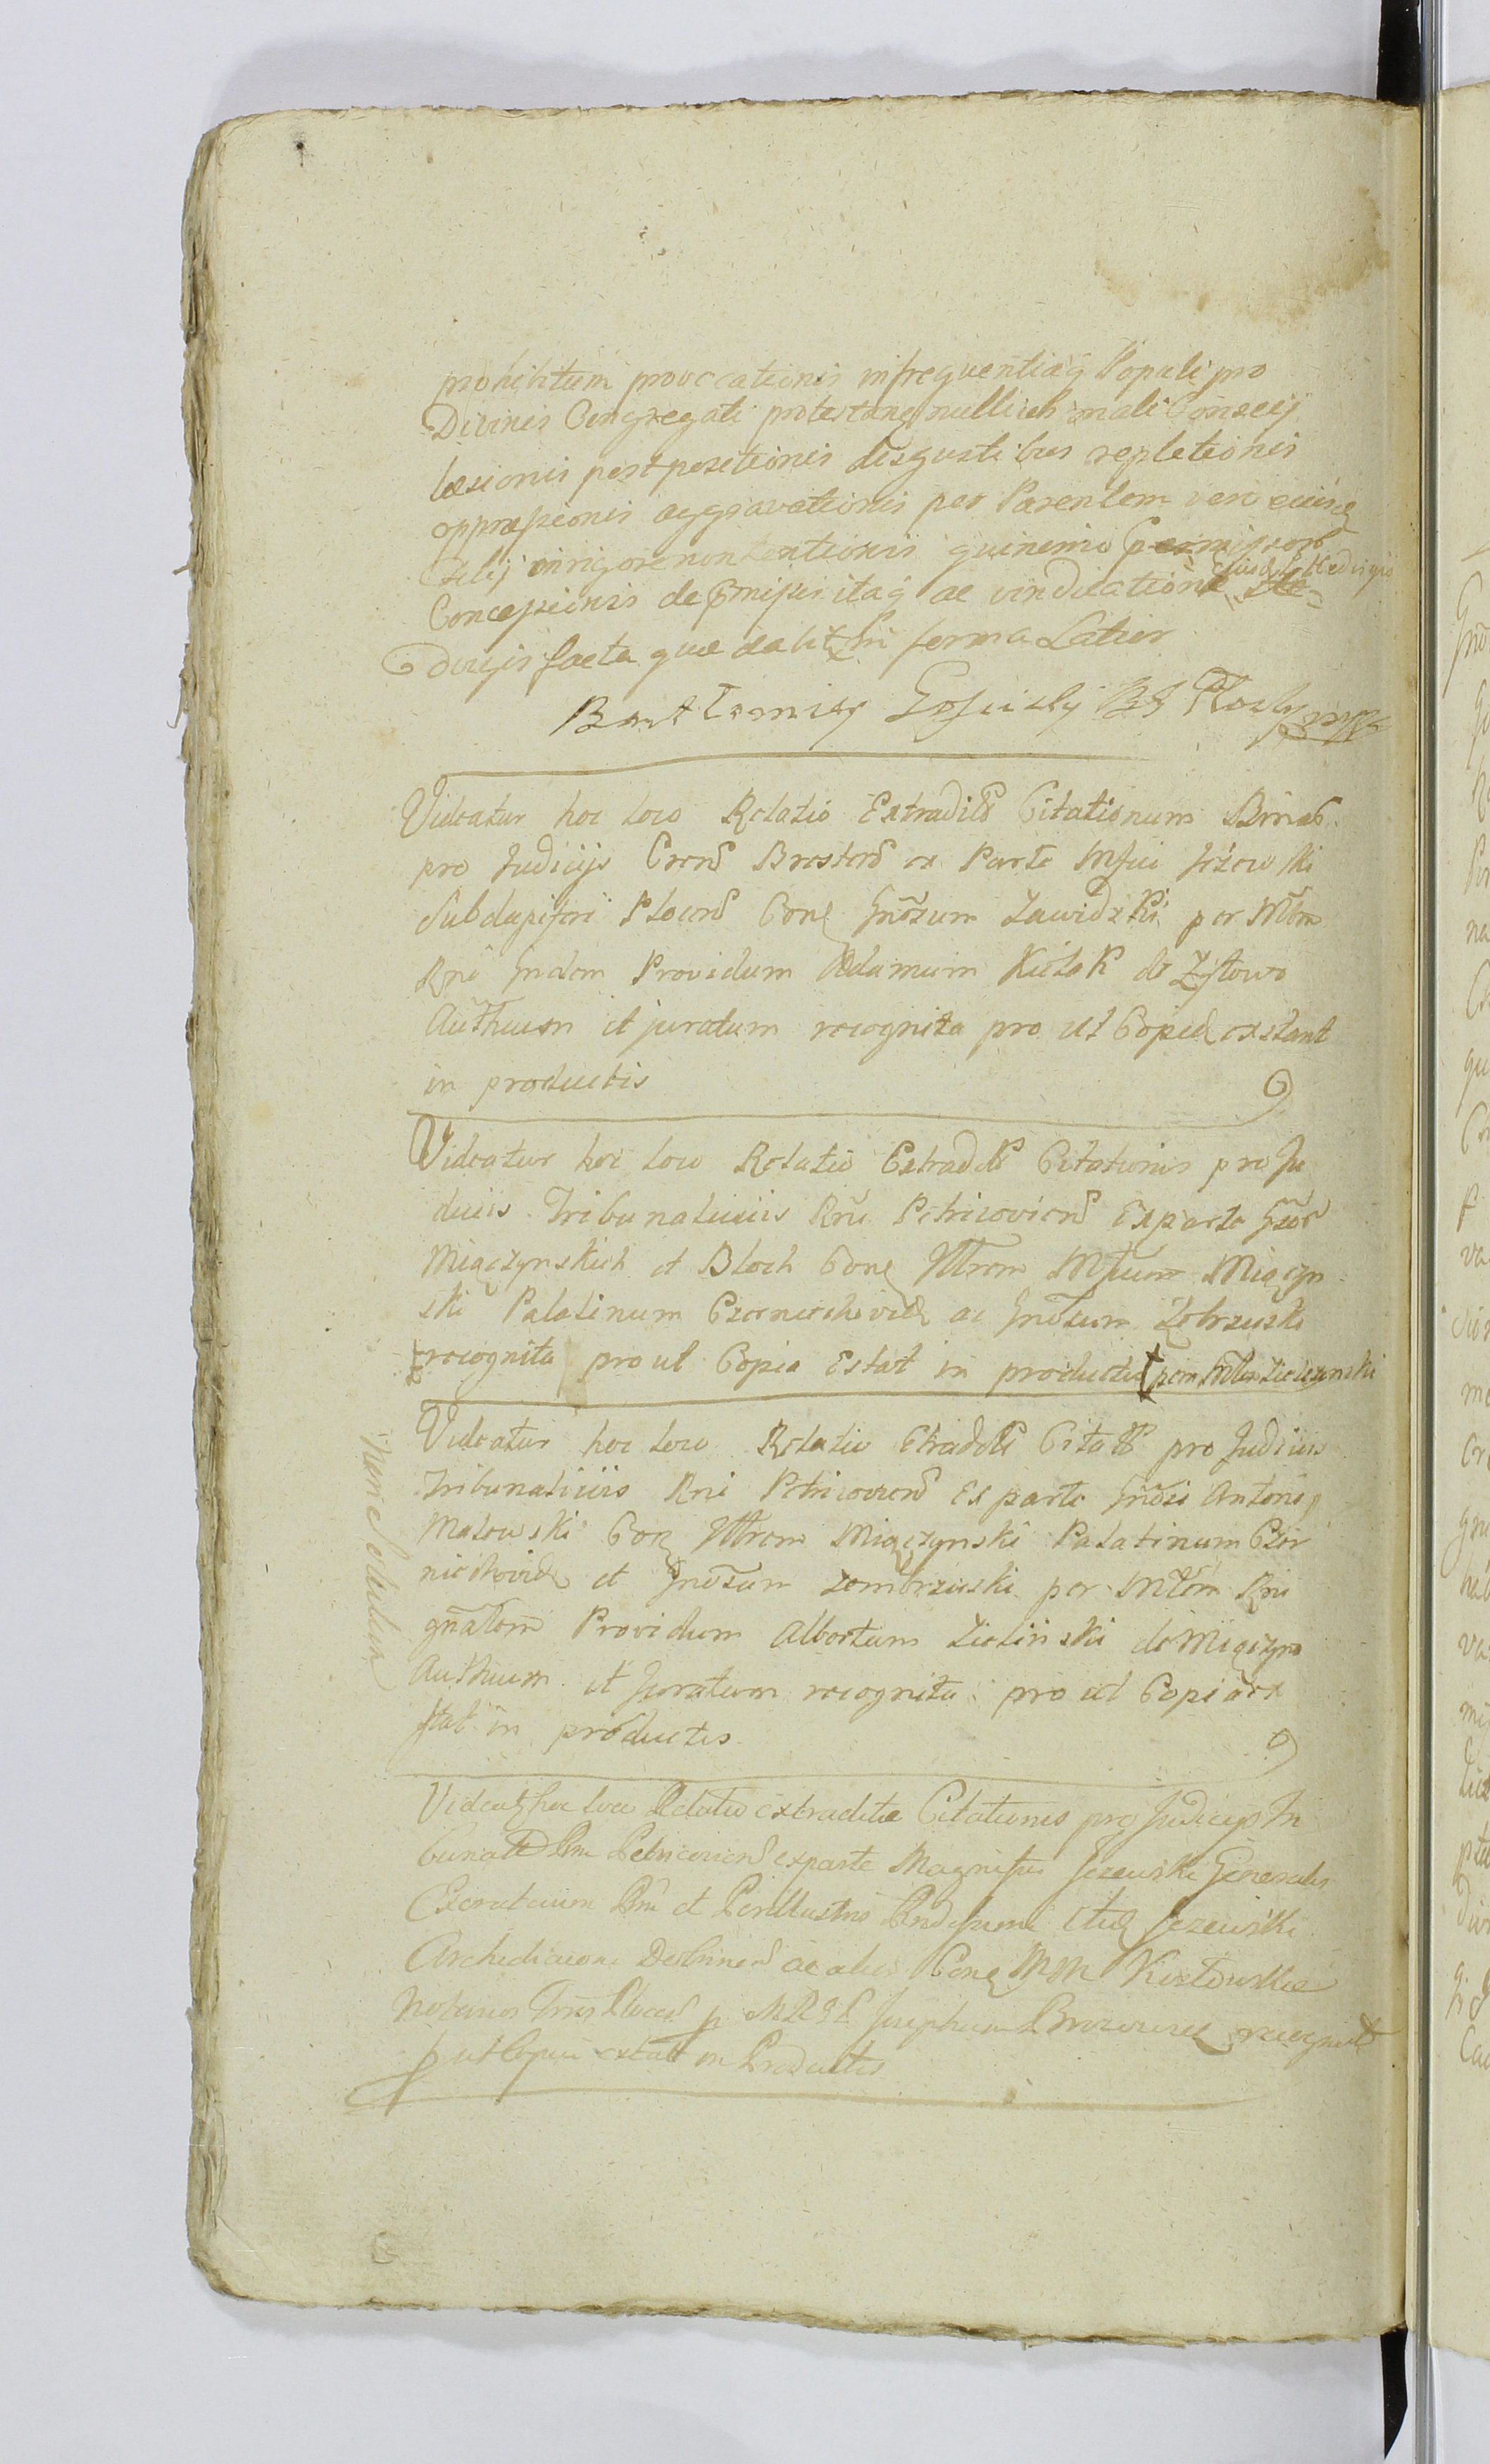 prohibitum provocationis infrequentiaq Populi pro
Divinis Congregati protestans nullius mali Conscij
læsionis postpositionis disgustibus repletionis
oppræsionis aggravationis per Parentem vero eius
Filij in rigore non tentionis quinimo
Concepsionis de pmissis itaq ac vindicatione
dvigis facta quæ dabit in forma Latior
Bartłomiey BG Płocky mpp
Videatur hoc loco Relatio Extradit Citationum Binar
pro Judicijs Crens Brestens ex Parte Mfici Jeżewski
Subdapiferi Plocens Cone Gnosum Zawidzki per Mtem
Rni Gnalem Providum Adamum Kielak de Zystowo
Authcum et juratum recognita pro ut Copiæ extant
in productis
Videatur hoc loco Relatio Extradit Citationis pro Ju
diciis Tribunalitiis Rni Petricoviens Ex parte Gsor
Miączynskich et Bloch Cone Illrem Mficum Miączyn
ski Palatinum Czerniechovien ac Gnosum Zebrzuski
recognita pro ut Copia Extat in productis per Mtem Zielezynski
Videatur hoc loco Relatio Etradit Citatis pro Judiciis
Tribunalitiis Rni Petricoviens Ex parte Gnosi Antonij
Makowski Con Illrem Miączynski Palatinum Czer
niechovien et Gnosum Zembrzuski per Mtem Rni
gnalem Providum Albertum Zielinski de Miączyno
Authcum et Juratum recognita pro ut Copia ex
stat in productis
Videat hoc loco Relatio extraditæ Citationis pro Judicijs Tri
bunal Rni Petricoviens exparte Magnifici Jezewski Generalis
Exercituum Rni et Perillustris Jezewski
Archidiaconi Dobrinens ac alios Cone MM Kostowskie
Notarios Tris Plocens p MRGL Josephum recognit
p ut Copia extat in Productis